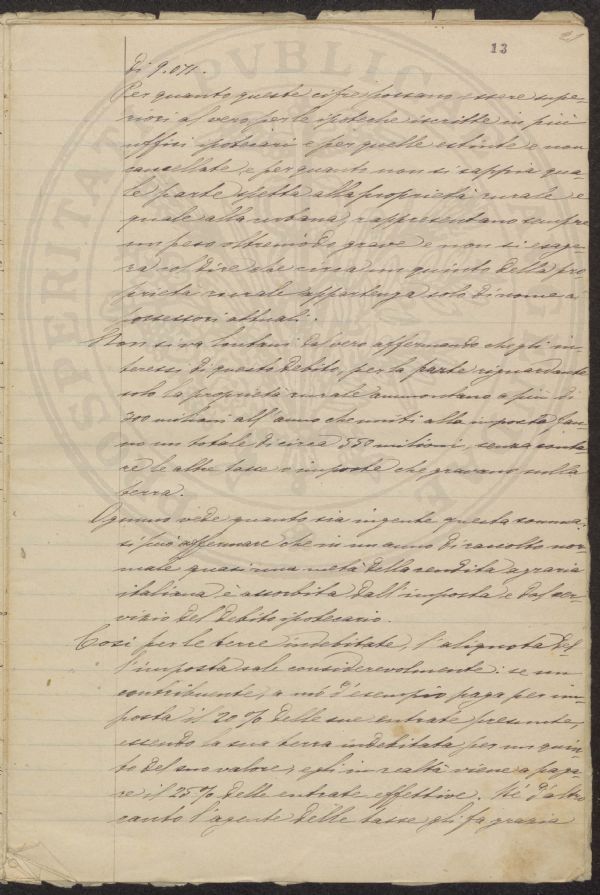 13
di 9.071.
Per quanto queste cifre possano essere supe-
riori al vero per le ipoteche iscritte in più
uffici ipotecari e per quelle estinte e non
cancellate, e per quanto non si sappia qua-
le parte spetta alla proprietà rurale e
quale alla urbana, rappresentano sempre
un peso oltremodo grave e non si esage-
ra col dire che circa un quinto della pro-
prietà rurale appartenga solo di nome ai
possessori attuali.
Non si va lontani dal vero affermando che gli in-
teressi di questo debito, per la parte riguardante
solo la proprietà rurale ammontano a più di
300 milioni all'anno che uniti alla imposta fan-
no un totale di circa 550 milioni, senza conta-
re le altre tasse o imposte che gravano sulla
terra.
Ognuno vede quanto sia ingente questa somma:
si può affermare che in un anno di raccolto nor-
male quasi una metà della rendita agraria
italiana è assorbita dall'imposta e dal ser-
vizio del debito ipotecario.
Così per le terre indebitate, l'aliquota del-
l'imposta sale considerevolmente: se un
contribuente, a mò d'esempio paga per im-
posta il 20% delle sue entrate presunte,
essendo la sua terra indebitata per un quin-
to del suo valore, egli in realtà viene a paga-
re il 25% delle entrate effettive. Nè d'altro
canto l'agente delle tasse gli fa grazia